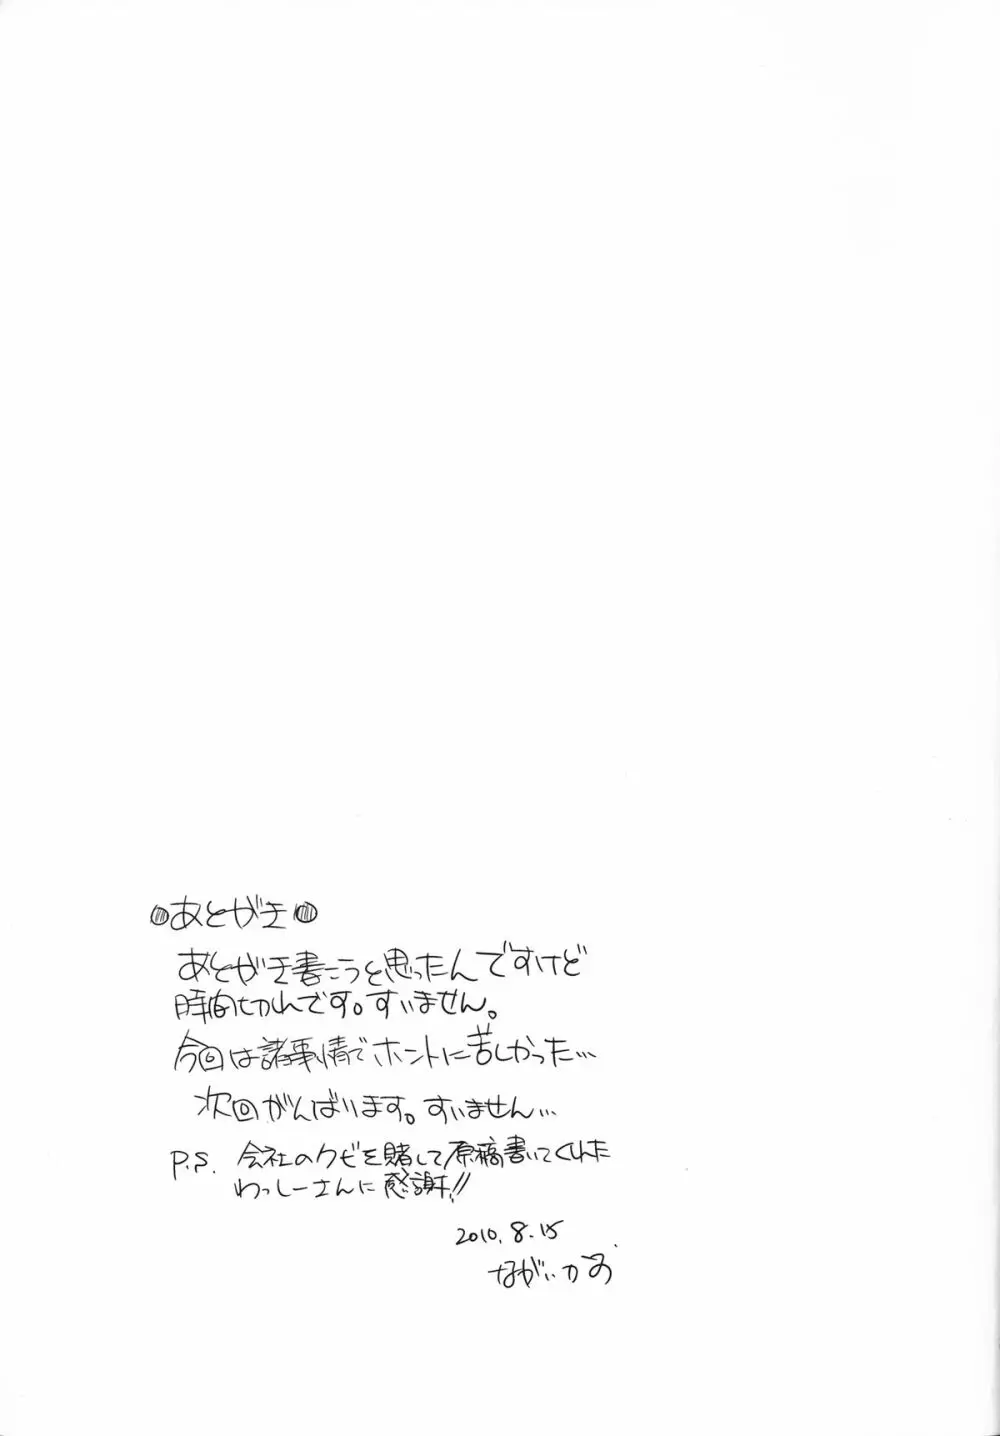 ●あとがき●
あとがき書こうと思ったんですけど
時間切れです。すいません。
今回は諸事情でホントに苦しかった…
次回がんばります。すいません…
P.S. 会社のクビを賭して原稿書いてくれた
わっしーさんに感謝!!
2010.8.15
ながいかの